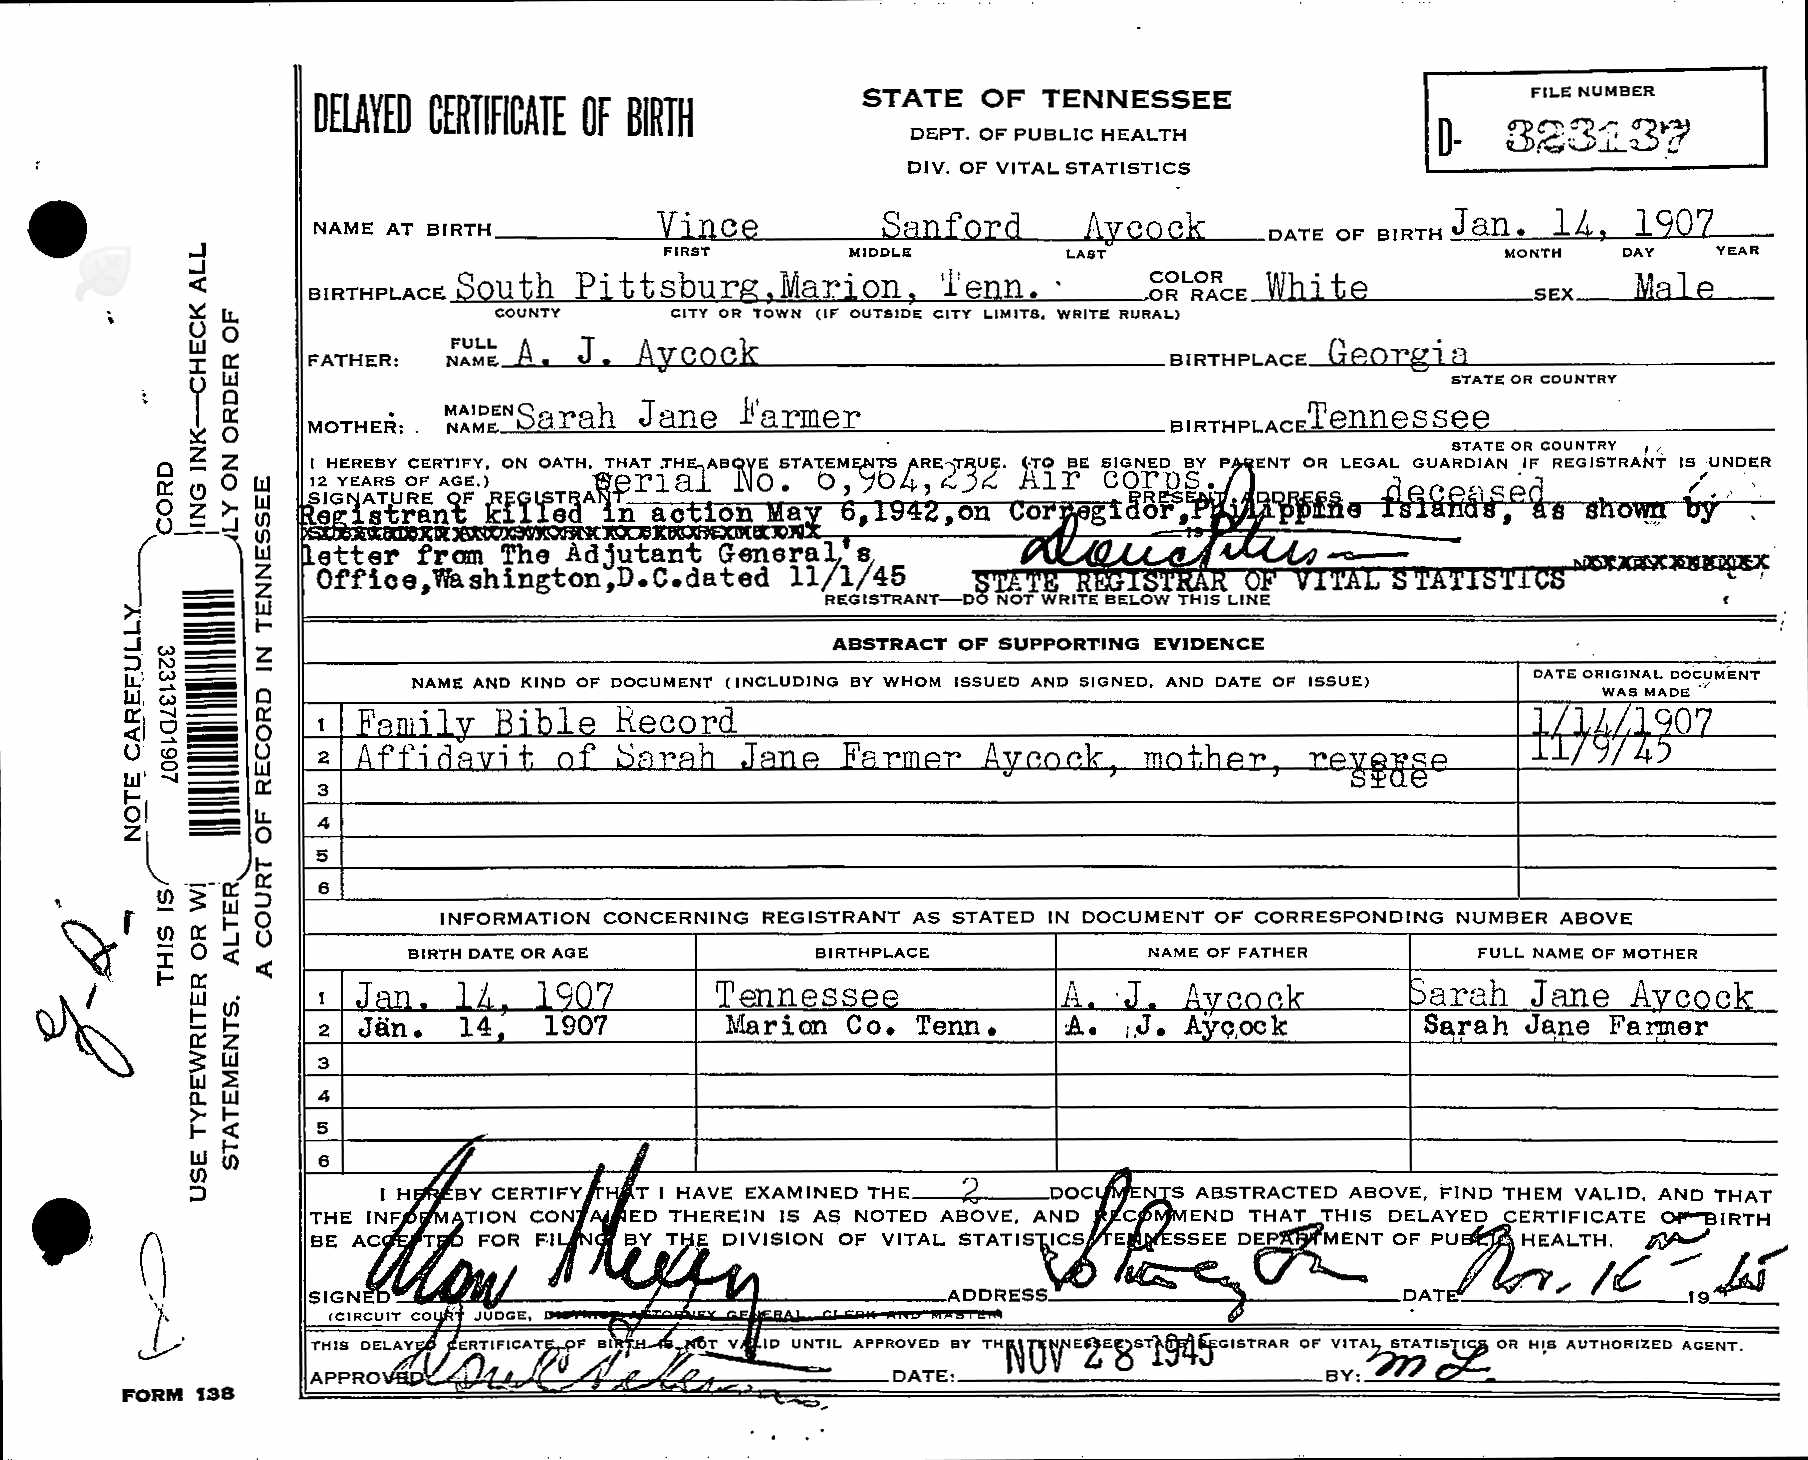 DELAYED CERTIFICATE OF BIRTH
STATE OF TENNESSEE
DEPT. OF PUBLIC HEALTH
DIV. OF VITAL STATISTICS
FILE NUMBER
D- 323137
NAME AT BIRTH Vince Sanford Aycock DATE OF BIRTH Jan. 14, 1907
FIRST MIDDLE LAST MONTH DAY YEAR
BIRTHPLACE South Pittsburg,Marion, Tenn. COLOR OR RACE White SEX Male
COUNTY CITY OR TOWN (IF OUTSIDE CITY LIMITS, WRITE RURAL)
FATHER: FULL NAME A. J. Aycock BIRTHPLACE Georgia
STATE OR COUNTRY
MOTHER: MAIDEN NAME Sarah Jane Farmer BIRTHPLACE Tennessee
STATE OR COUNTRY
I HEREBY CERTIFY, ON OATH, THAT THE ABOVE STATEMENTS ARE TRUE. (TO BE SIGNED BY PARENT OR LEGAL GUARDIAN IF REGISTRANT IS UNDER
12 YEARS OF AGE.) Serial No. 6,964,232 Air corps.
SIGNATURE OF REGISTRANT PRESENT ADDRESS deceased
Registrant killed in action May 6,1942,on Corregidor,Philippine Islands, as shown by
letter from The Adjutant General's
Office,Washington,D.C.dated 11/1/45 STATE REGISTRAR OF VITAL STATISTICS
REGISTRANT—DO NOT WRITE BELOW THIS LINE
ABSTRACT OF SUPPORTING EVIDENCE
NAME AND KIND OF DOCUMENT (INCLUDING BY WHOM ISSUED AND SIGNED, AND DATE OF ISSUE) DATE ORIGINAL DOCUMENT WAS MADE
1 Family Bible Record 1/14/1907
2 Affidavit of Sarah Jane Farmer Aycock, mother, reverse side 11/9/45
3
4
5
6
INFORMATION CONCERNING REGISTRANT AS STATED IN DOCUMENT OF CORRESPONDING NUMBER ABOVE
BIRTH DATE OR AGE BIRTHPLACE NAME OF FATHER FULL NAME OF MOTHER
1 Jan. 14, 1907 Tennessee A. J. Aycock Sarah Jane Aycock
2 Jan. 14, 1907 Marion Co. Tenn. A. J. Aycock Sarah Jane Farmer
3
4
5
6
I HEREBY CERTIFY THAT I HAVE EXAMINED THE 2 DOCUMENTS ABSTRACTED ABOVE, FIND THEM VALID, AND THAT
THE INFORMATION CONTAINED THEREIN IS AS NOTED ABOVE, AND RECOMMEND THAT THIS DELAYED CERTIFICATE OF BIRTH
BE ACCEPTED FOR FILING BY THE DIVISION OF VITAL STATISTICS, TENNESSEE DEPARTMENT OF PUBLIC HEALTH.
SIGNED ADDRESS DATE Nov. 19 45
(CIRCUIT COURT JUDGE, DISTRICT ATTORNEY GENERAL, CLERK AND MASTER)
THIS DELAYED CERTIFICATE OF BIRTH IS NOT VALID UNTIL APPROVED BY THE TENNESSEE STATE REGISTRAR OF VITAL STATISTICS OR HIS AUTHORIZED AGENT.
APPROVED DATE: NOV 28 1945 BY:
FORM 138
NOTE CAREFULLY
323137D1907
THIS IS CORD
USE TYPEWRITER OR WI ING INK—CHECK ALL
STATEMENTS. ALTER LY ON ORDER OF
A COURT OF RECORD IN TENNESSEE